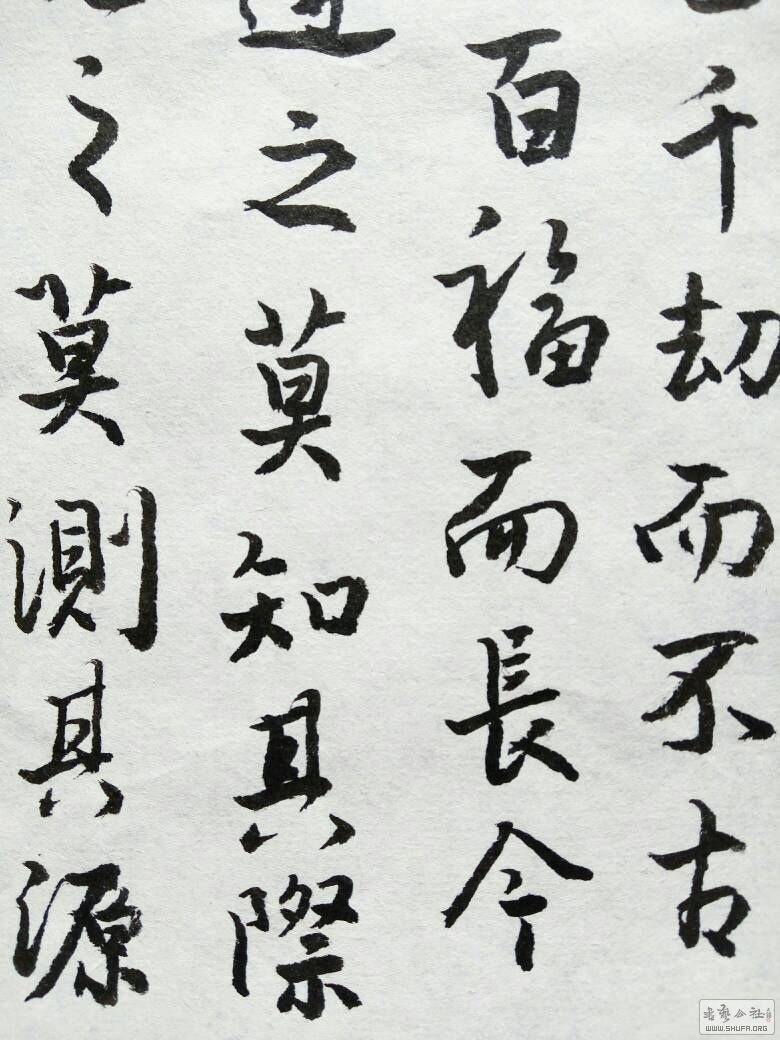 千劫而不古
百福而長今
之莫知其際
之莫測其源
WWW.SHUFA.ORG